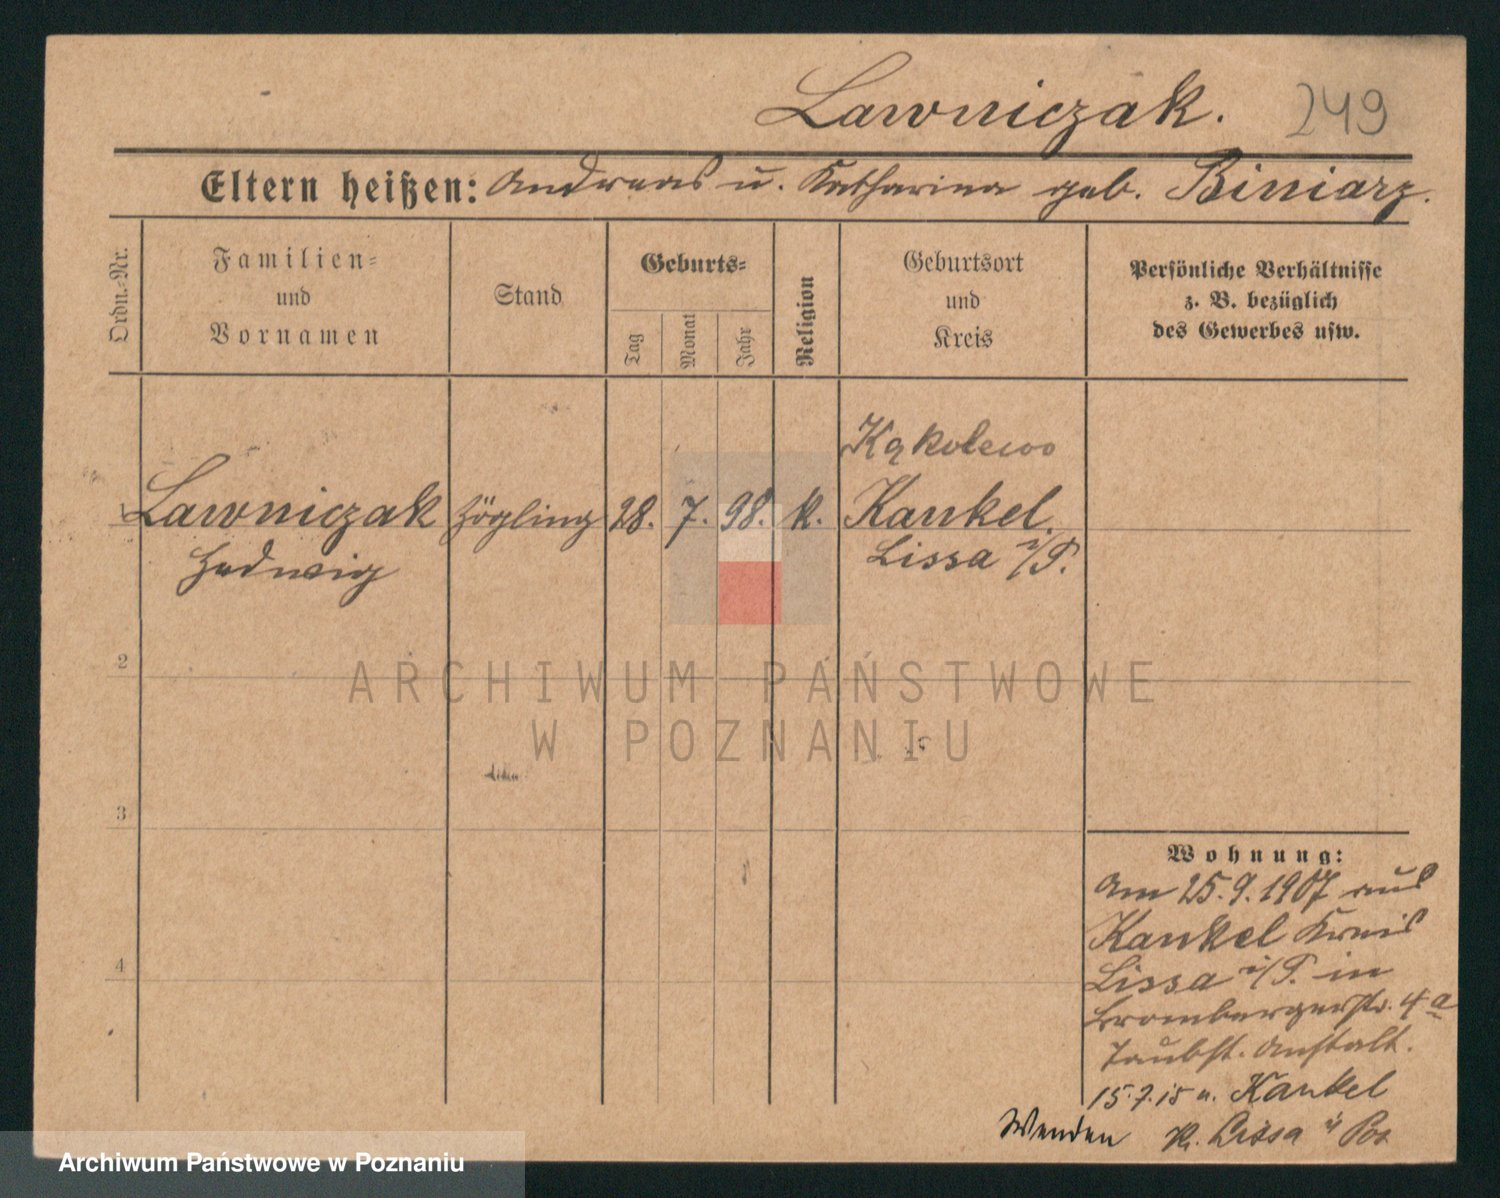 Lawniczak. 249
Eltern heißen: Andreas u. Katharina geb. Biniarz.
Ordn.-Nr.
Familien-
und
Vornamen
Stand
Geburts-
Tag
Monat
Jahr
Religion
Geburtsort
und
Kreis
Persönliche Verhältnisse
z. B. bezüglich
des Gewerbes usw.
Kąkolewo
1 Lawniczak Zögling 28. 7. 98. k. Kankel.
Hedwig Lissa i/P.
2
3
4
Wohnung:
Am 25.9.1907 aus
Kankel Kreis
Lissa i/P. in
Brombergerstr. 4a
Taubst. Anstalt.
15.7.15 n. Kankel
Wenden K. Lissa i/ Pos
ARCHIWUM PAŃSTWOWE
W POZNANIU
Archiwum Państwowe w Poznaniu